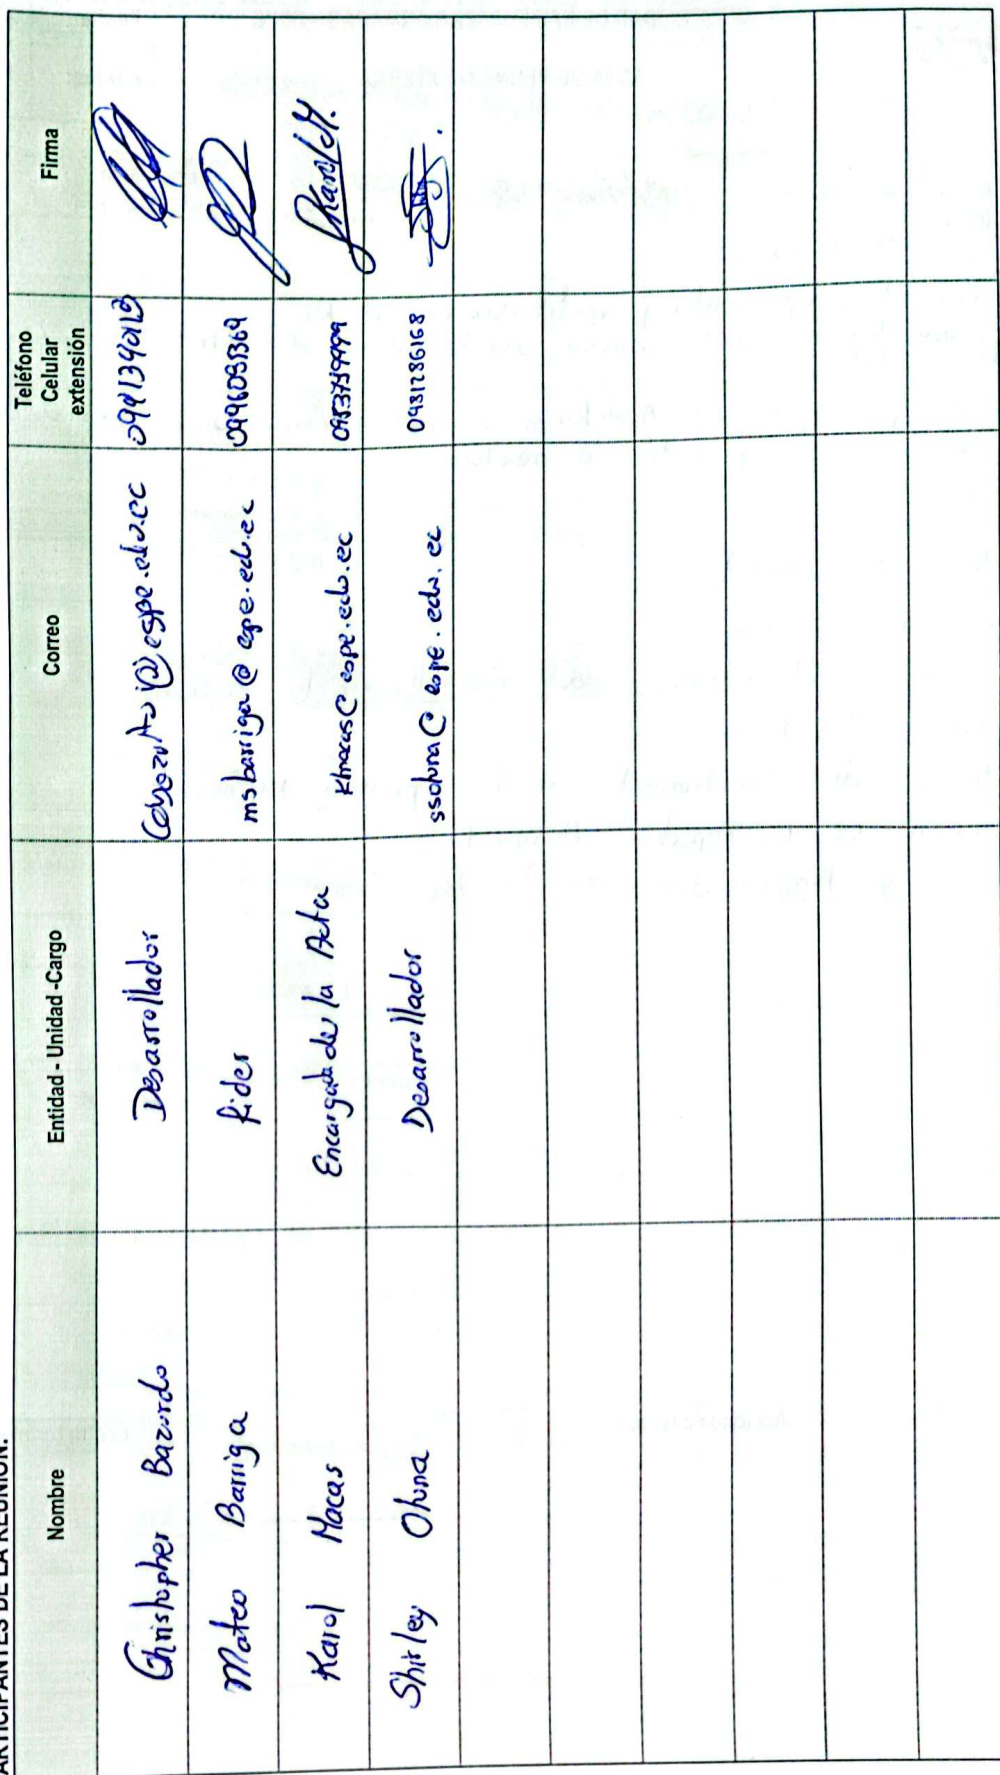 PARTICIPANTES DE LA REUNIÓN:
Nombre Entidad - Unidad -Cargo Correo Teléfono Celular extensión Firma
Christopher Bazurdo Desarrollador
Mateo Barriga Lider msbarriga@espe.edu.ec
Karol Macas Encargada de la Acta klmacas@espe.edu.ec Karol M.
Shirley Oluna Desarrollador ssoluna@espe.edu.ec 0981286168